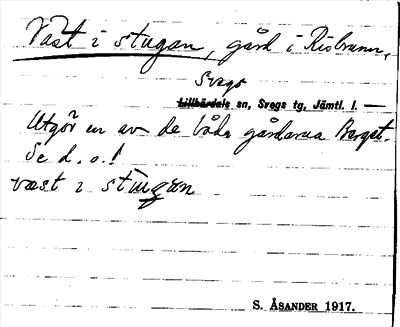 Väst i stugan, gård i Risbrunn,
Svegs
Lillhärdals sn, Svegs tg, Jämtl. l.
Utgör en av de båda gårdarna Berget.
Se d. o.!
væst i stugan
S. ÅSANDER 1917.